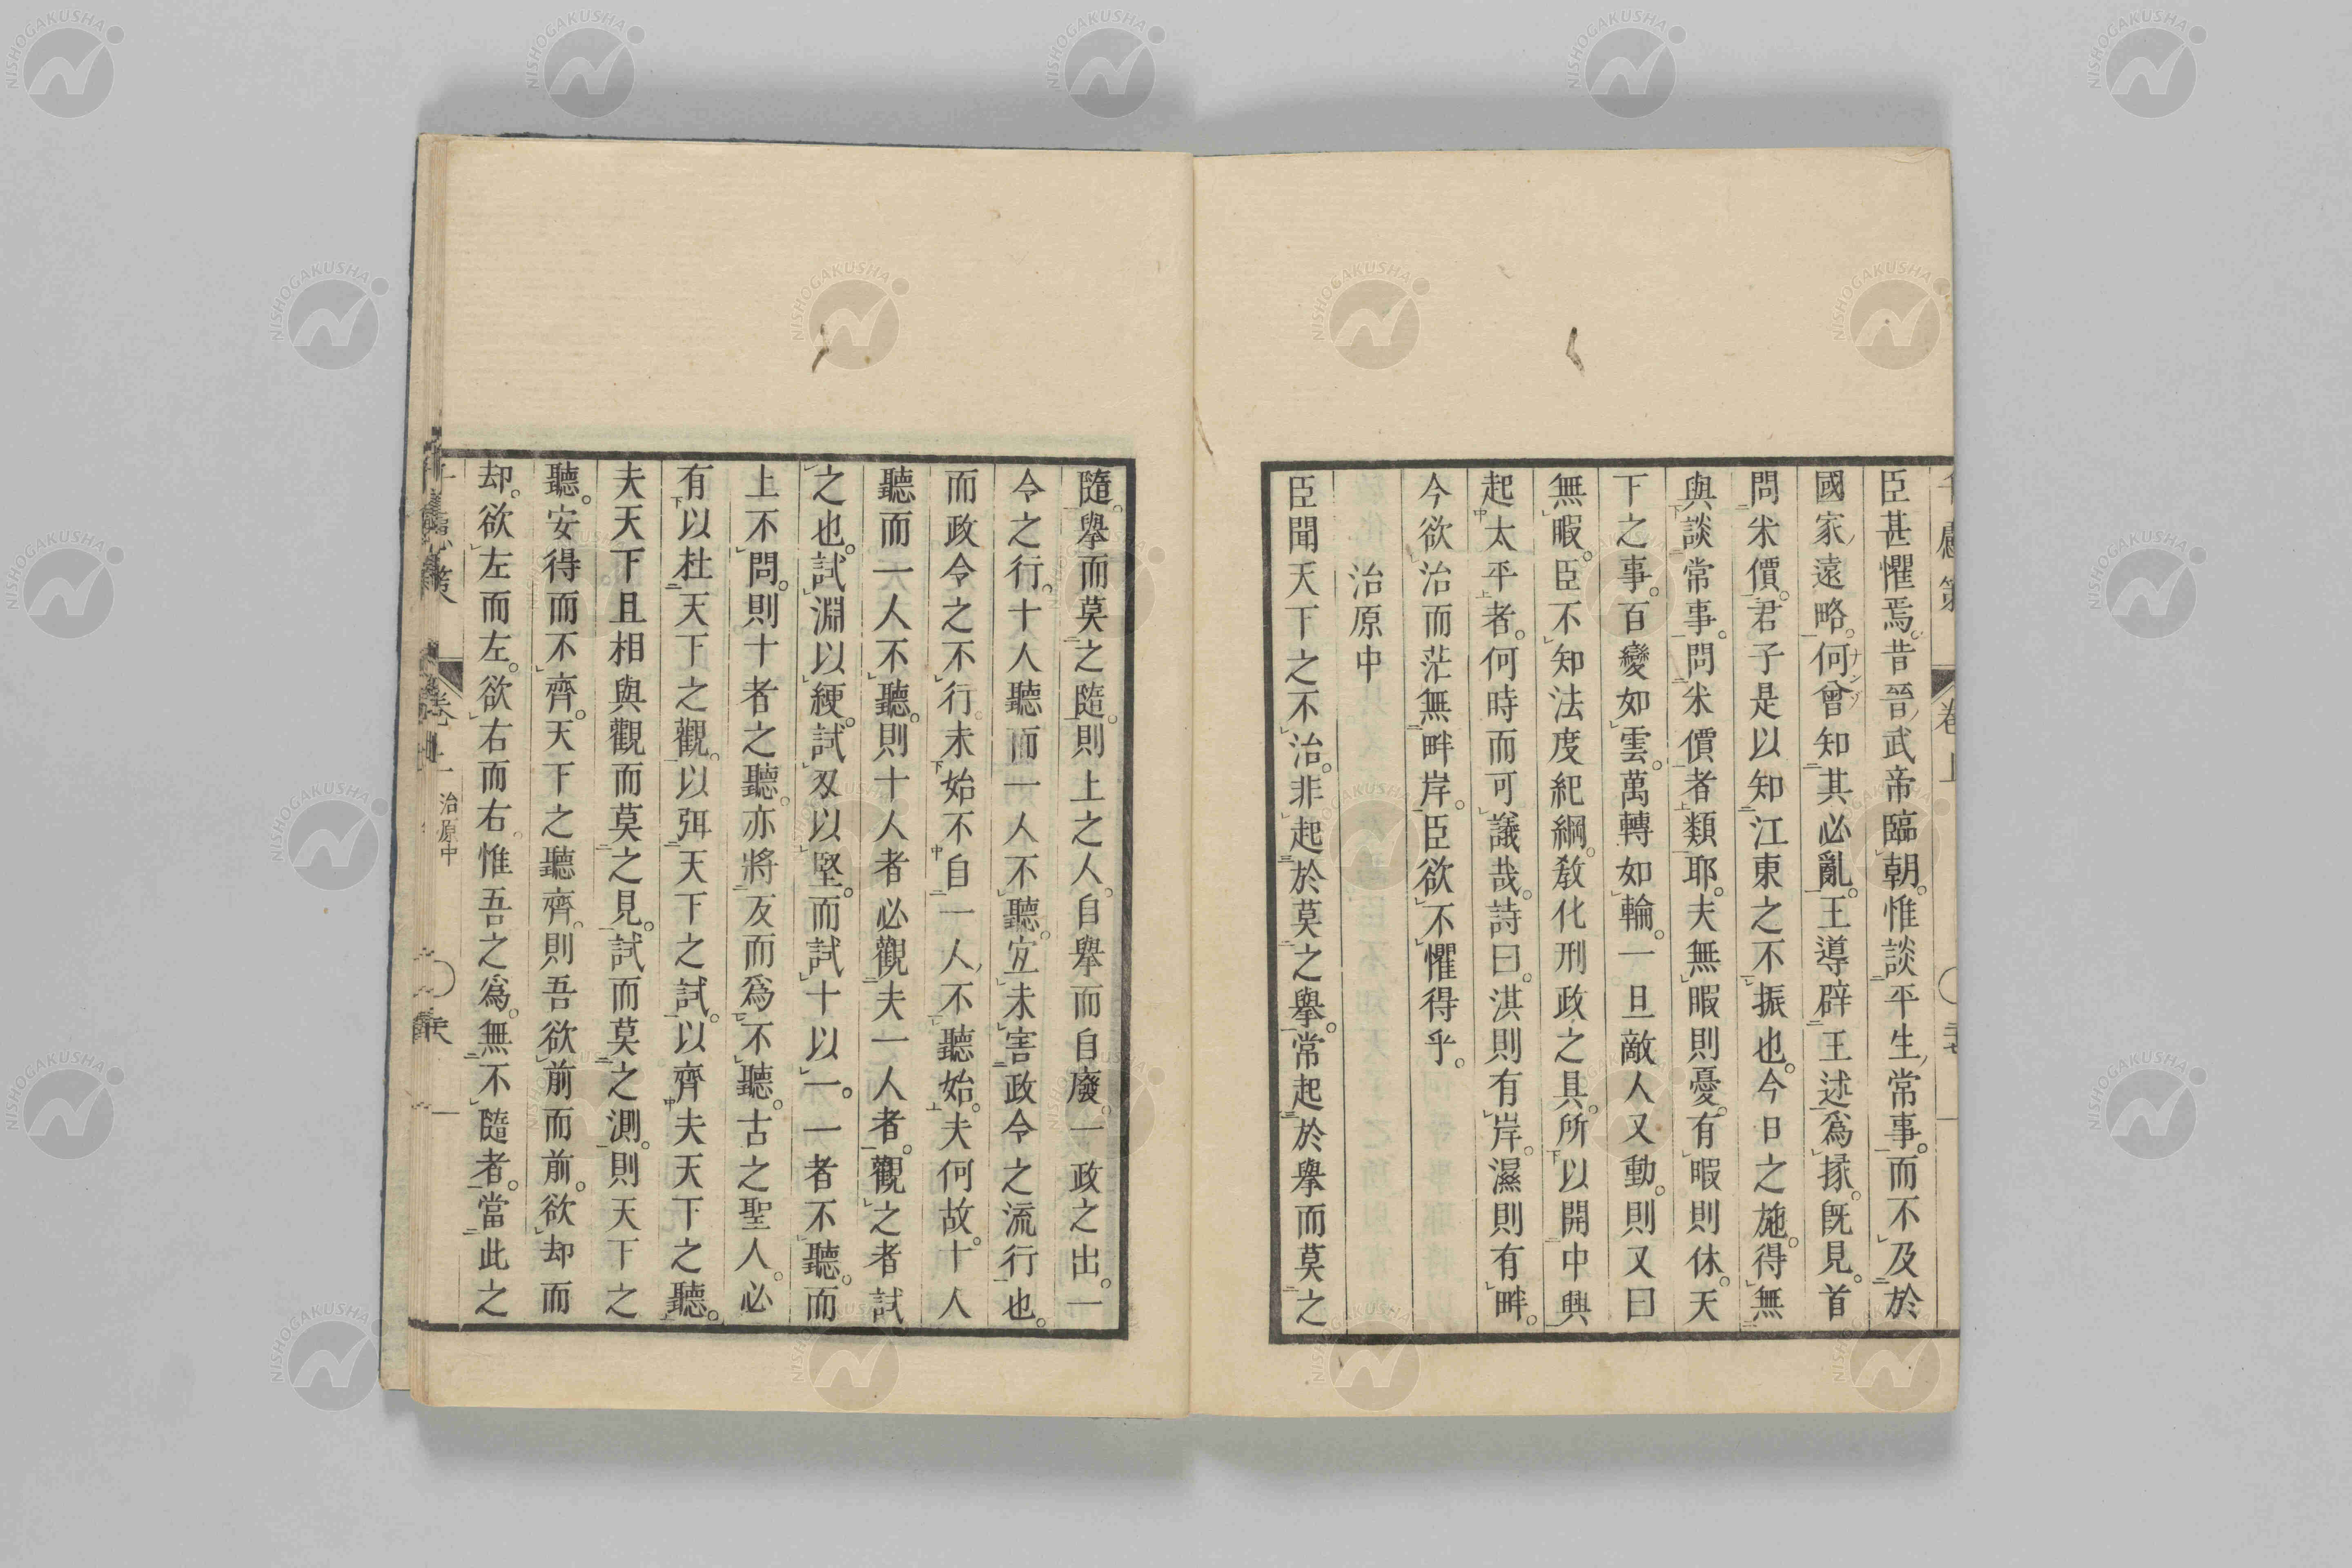 臣甚懼焉。昔晉武帝臨朝。惟談平生常事。而不及於
國家遠略。何曾知其必亂。王導辟王述爲掾。既見。首
問米價。君子是以知江東之不振也。今日之施。得無
與談常事。問米價者類耶。夫無暇則憂。有暇則休。天
下之事。百變如雲。萬轉如輪。一旦敵人又動。則又曰
無暇。臣不知法度紀綱。敎化刑政之具。所以開中興
起太平者。何時而可議哉。詩曰。淇則有岸。濕則有畔。
今欲治而茫無畔岸。臣欲不懼得乎。
治原中
臣聞天下之不治。非起於莫之擧。常起於擧而莫之
隨。擧而莫之隨。則上之人。自擧而自廢。一政之出。一
令之行。十人聽而一人不聽。宜未害政令之流行也。
而政令之不行。未始不自一人不聽始。夫何故。十人
聽而一人不聽。則十人者必觀夫一人者。觀之者試
之也。試淵以綆。試刄以堅。而試十以一。一者不聽。而
上不問。則十者之聽。亦將反而爲不聽。古之聖人。必
有以杜天下之觀。以弭天下之試。以齊夫天下之聽。
夫天下且相與觀而莫之見。試而莫之測。則天下之
聽。安得而不齊。天下之聽齊。則吾欲前而前。欲却而
却。欲左而左。欲右而右。惟吾之爲。無不隨者。當此之
治原中
NISHOGAKUSHA